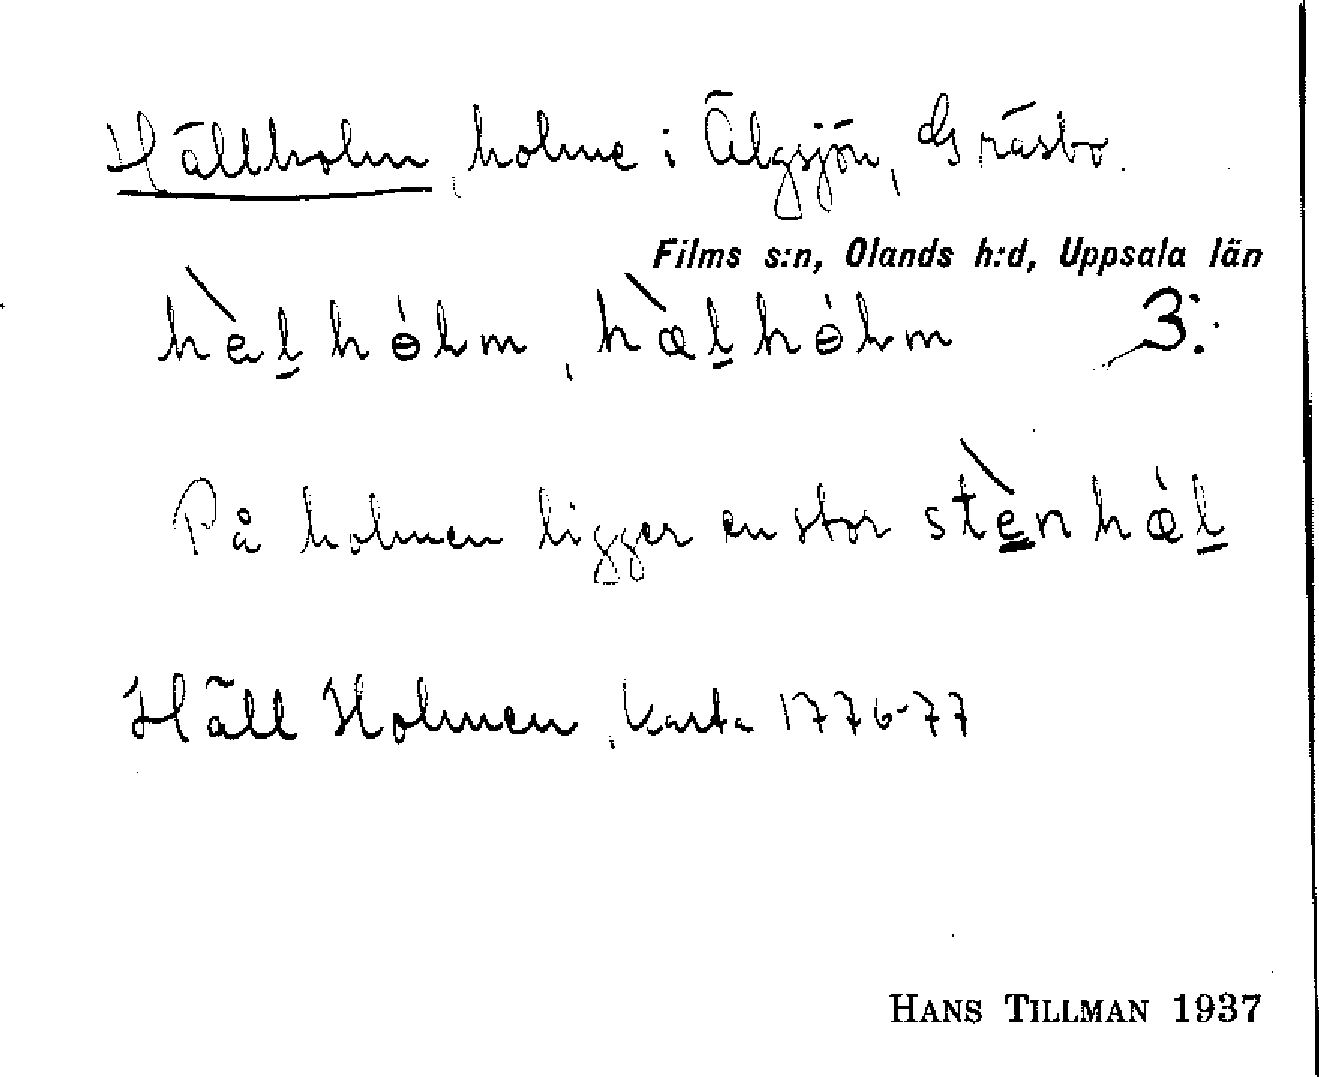 Hällholm, holme i Älgsjön, Gräsbo.
Films s:n, Olands h:d, Uppsala län
hèl̲hɵ́lm, hæ̀l̲hɵ́lm 3:
På holmen ligger en stor stè̲nhǽl̲
Häll Holmen, karta 1776-77
HANS TILLMAN 1937